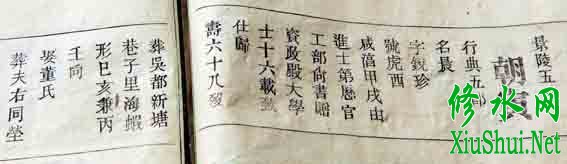 景陵五
朝
行典五郎
字銳珍
號虎西
咸淳甲戌由
進士第歷官
工部尚書贈
資政殿大學
士十六載致
仕歸
壽六十八歿
葬吳都新塘
巷子里海蝦
形巳亥兼丙
壬向
娶董氏
葬夫右同塋
修水网
XiuShui.Net